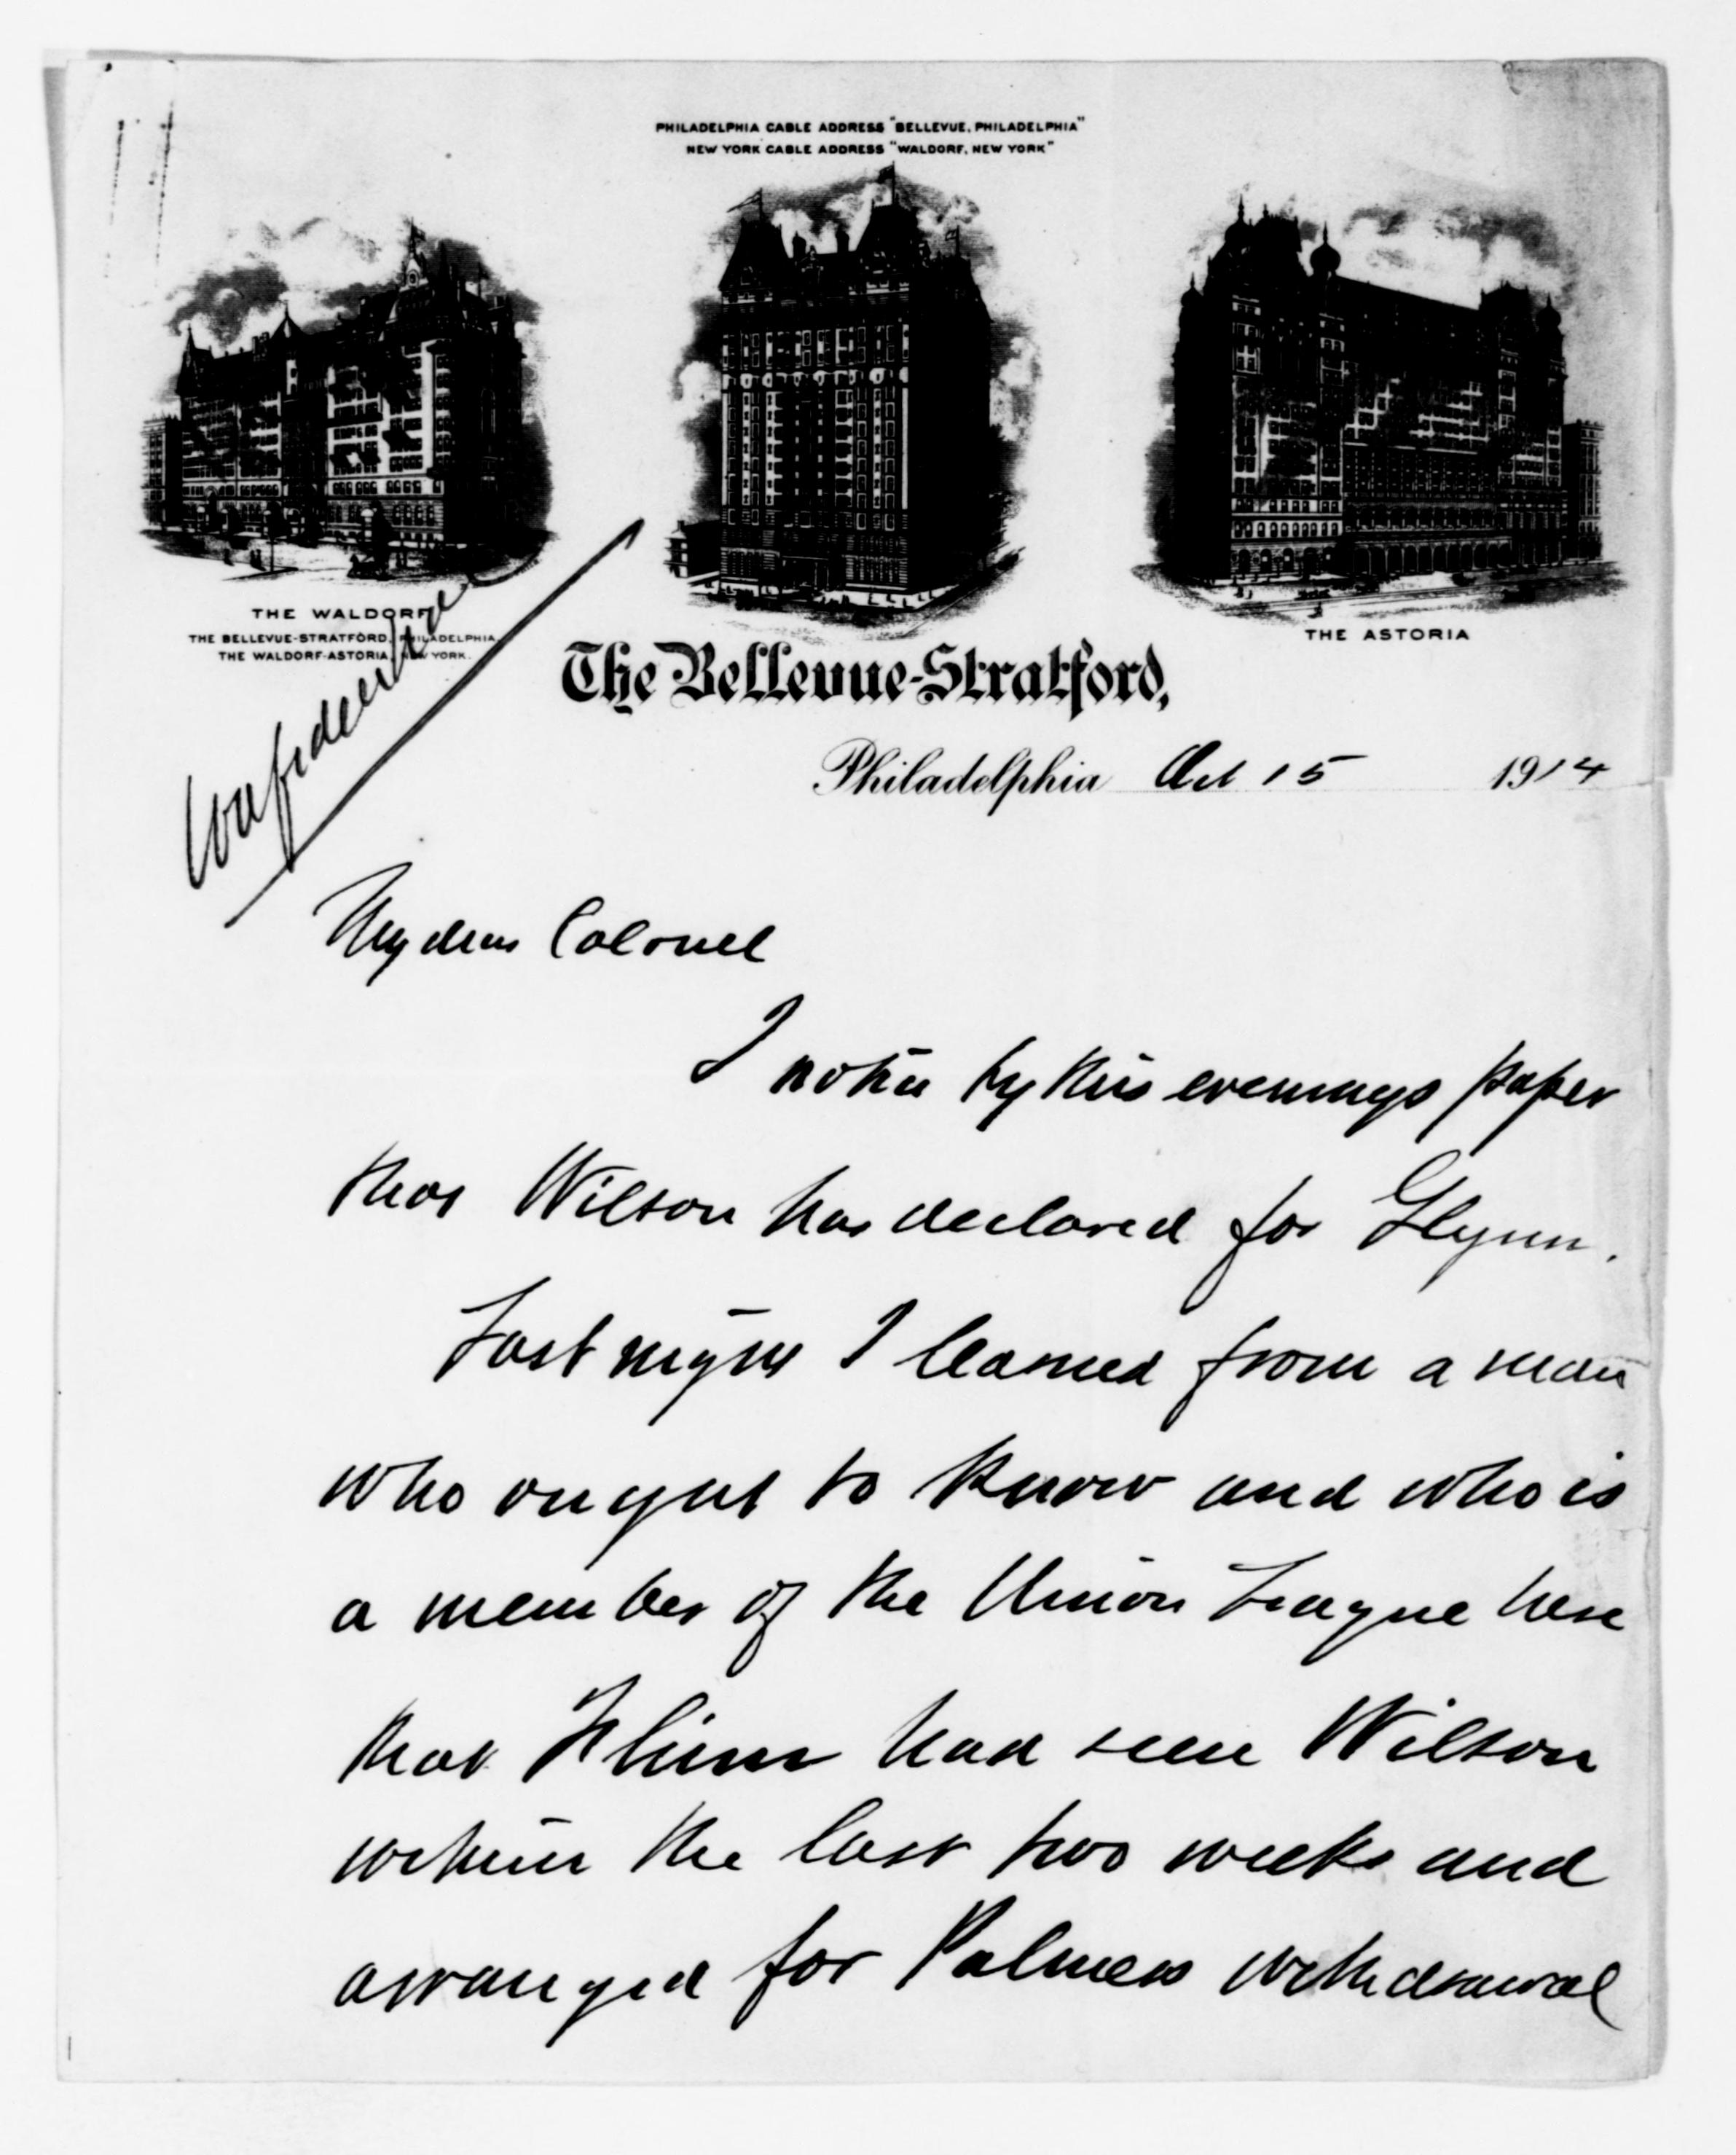 PHILADELPHIA CABLE ADDRESS "BELLEVUE, PHILADELPHIA"
NEW YORK CABLE ADDRESS "WALDORF, NEW YORK"
THE WALDORF
THE BELLEVUE-STRATFORD, PHILADELPHIA,
THE WALDORF-ASTORIA, NEW YORK.
THE ASTORIA
The Bellevue-Stratford,
Philadelphia Oct 15 1914
Confidential
My dear Colonel
I notice by this evenings paper
that Wilson has declared for Glynn.
Last night I learned from a man
who ought to know and who is
a member of the Union League here
that Flinn had seen Wilson
within the last two weeks and
arranged for Palmers withdrawal